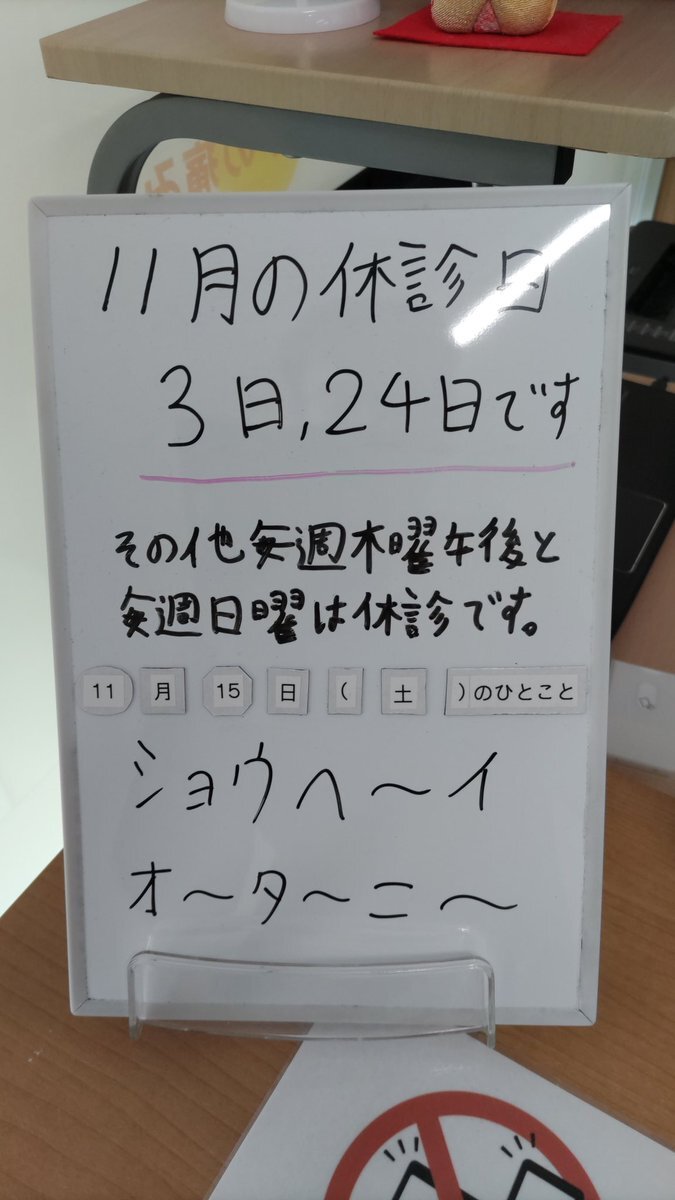 の痛み
11月の休診日
3日,24日です
その他毎週木曜午後と
毎週日曜は休診です。
11月15日(土)のひとこと
ショウヘ〜イ
オ〜タ〜ニ〜